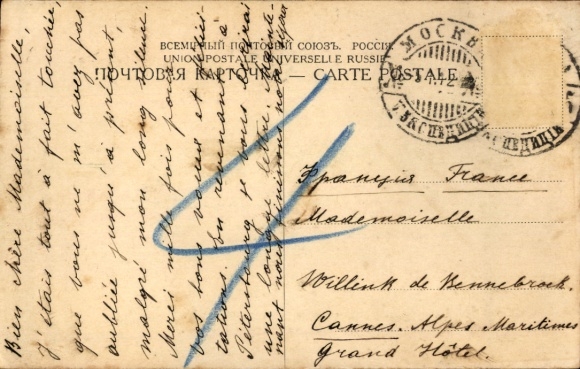 ВСЕМІРНЫЙ ПОЧТОВЫЙ СОЮЗЪ. РОССІЯ
UNION POSTALE UNIVERSELLE RUSSIE
ПОЧТОВАЯ КАРТОЧКА — CARTE POSTALE
МОСКВ
ЭКСПЕДИЦІЯ
Bien chère Mademoiselle,
J'étais tout à fait touchée,
que vous ne m'avez pas
oubliée jusqu'à présent,
malgré mon long silence.
Merci mille fois pour
vos bons voeux et
En revenant à
Pétersbourg je vous écrirai
une longue lettre,
nant nous
Франція France
Mademoiselle
Willink de Bennebroek.
Cannes. Alpes Maritimes
Grand Hôtel.